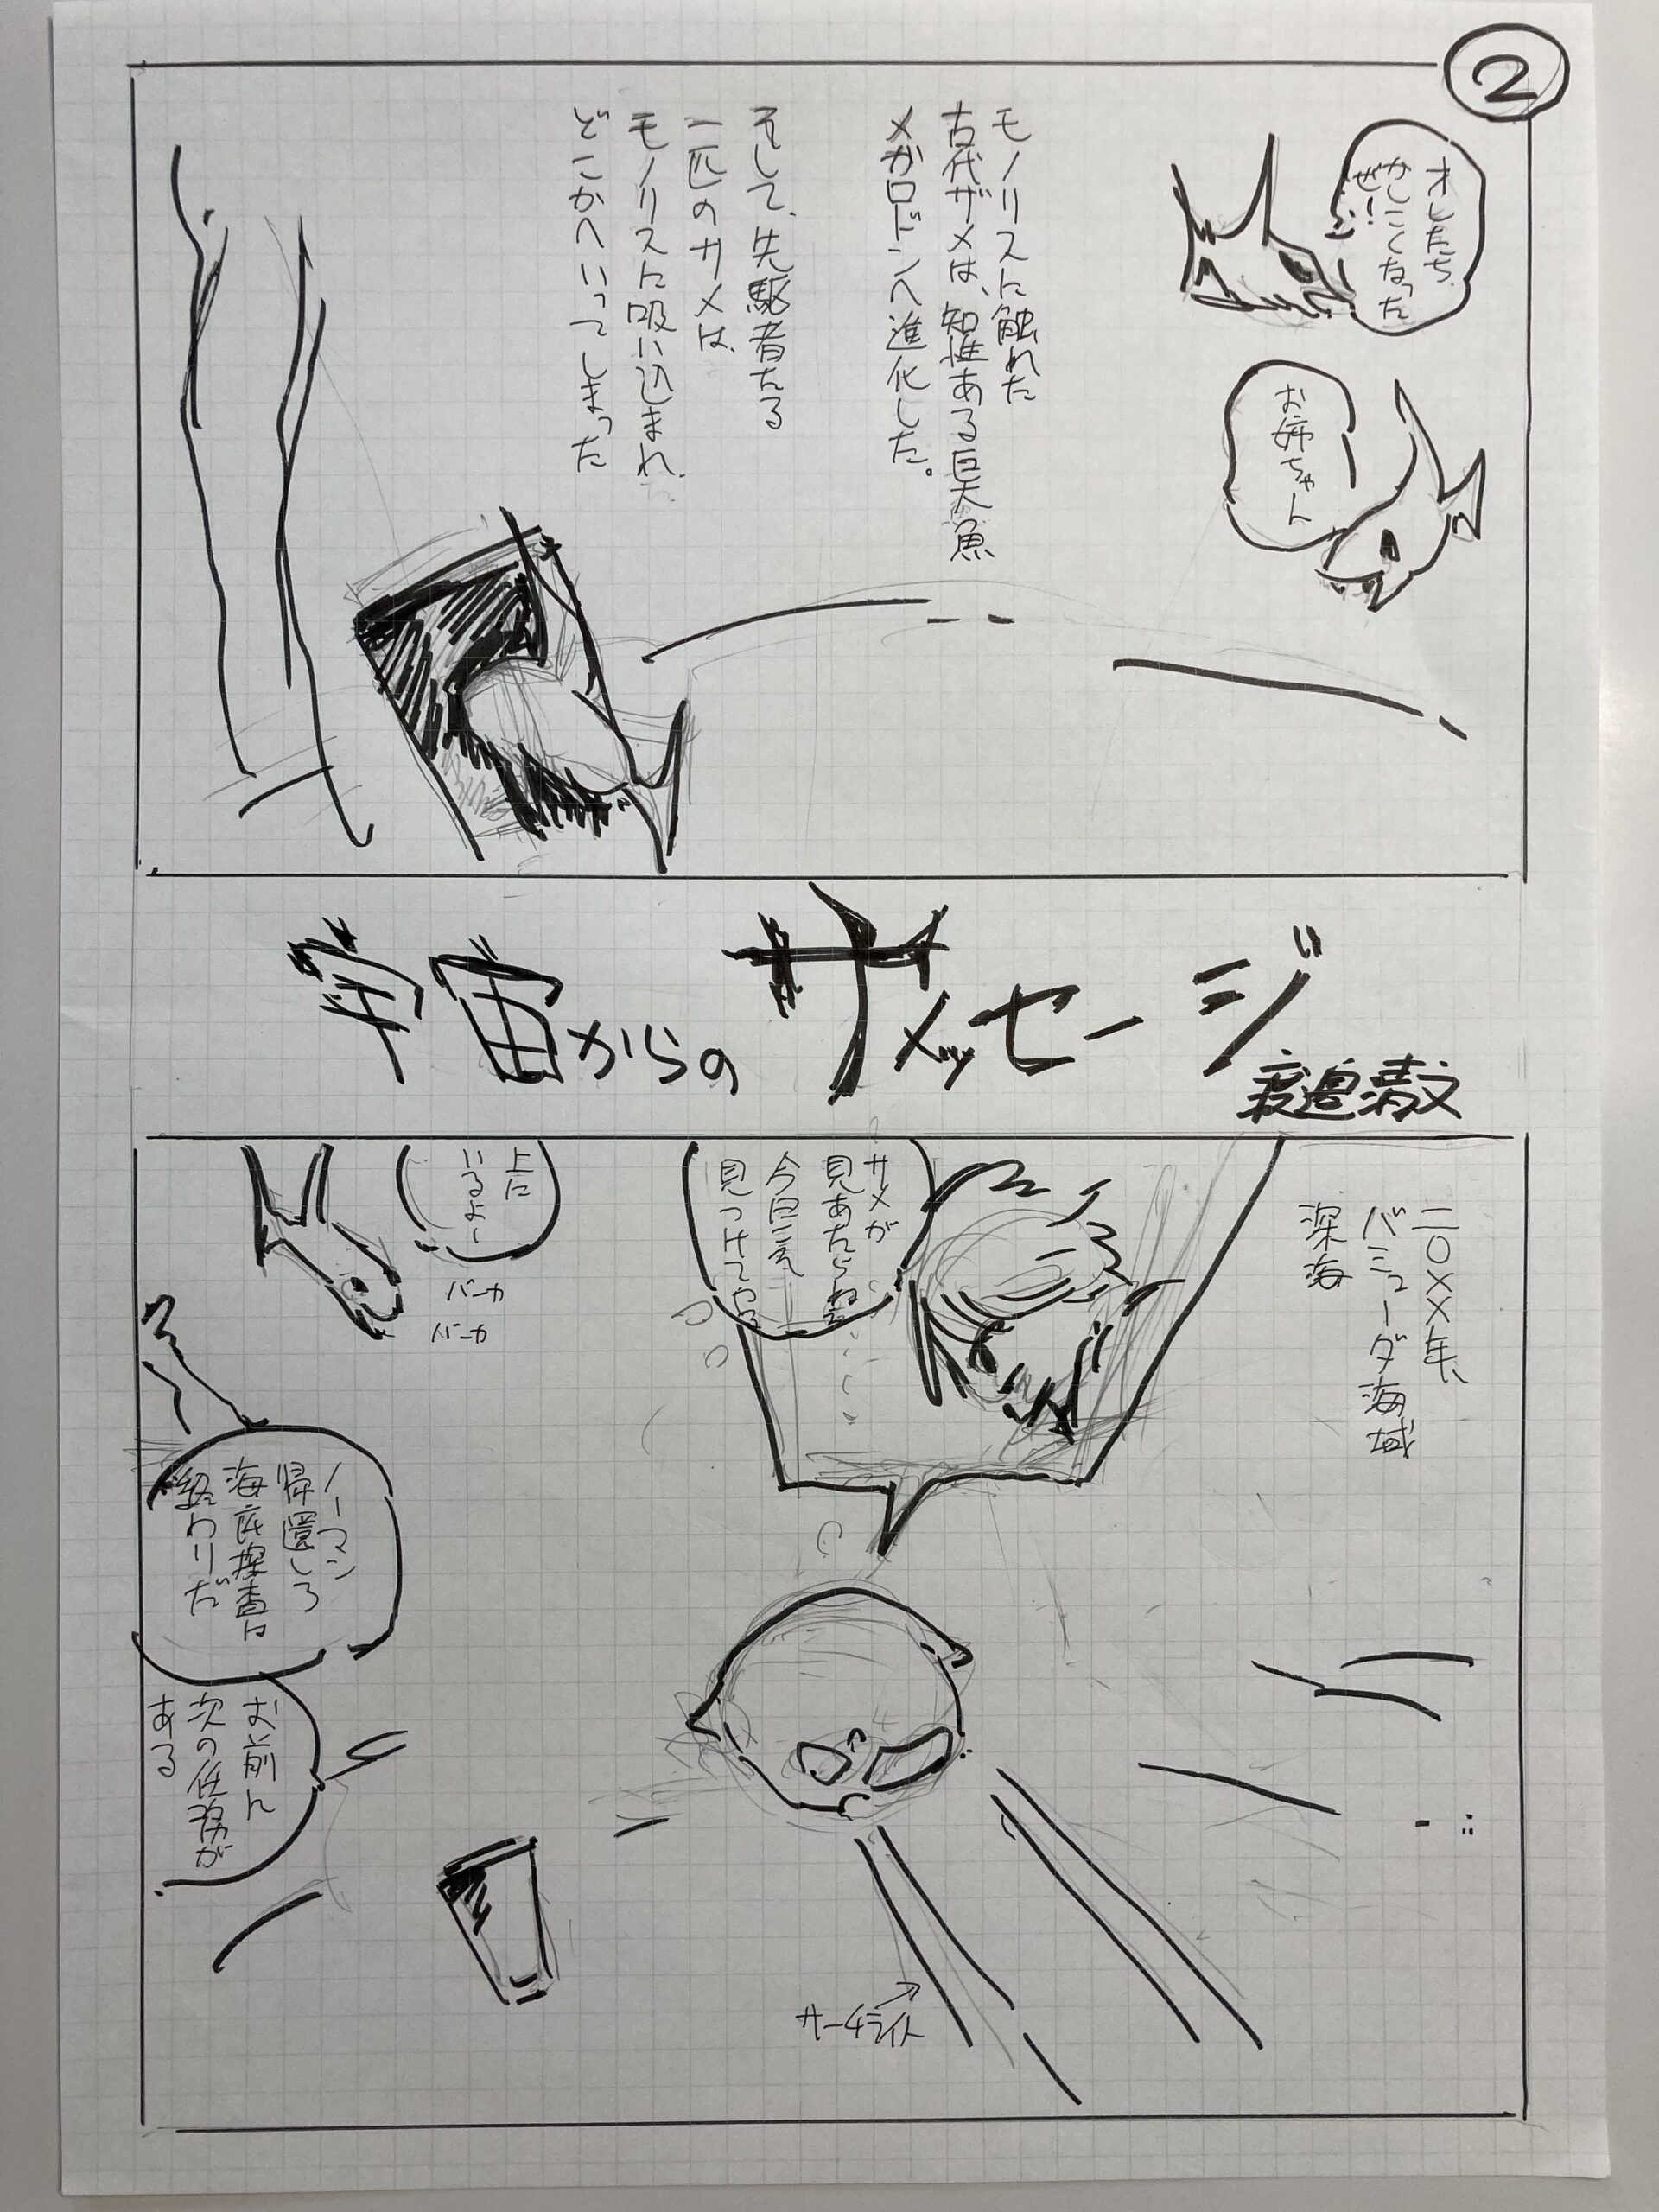 2
オレたち
かしこくなった
ぜ!
お姉ちゃん
モノリスに触れた
古代ザメは、知性ある巨大魚
メガロドンへ進化した。
そして、先駆者たる
一匹のサメは、
モノリスに吸い込まれ、
どこかへいってしまった
宇宙からのサメッセージ
渡邉清文
二〇XX年、
バミューダ海域
深海
サメが
見あたらねえ
今日こそ
見つけてやる
上に
いるよ〜
バーカ
バーカ
ノーマン
帰還しろ
海底探査は
終わりだ
お前に
次の任務が
ある
サーチライト